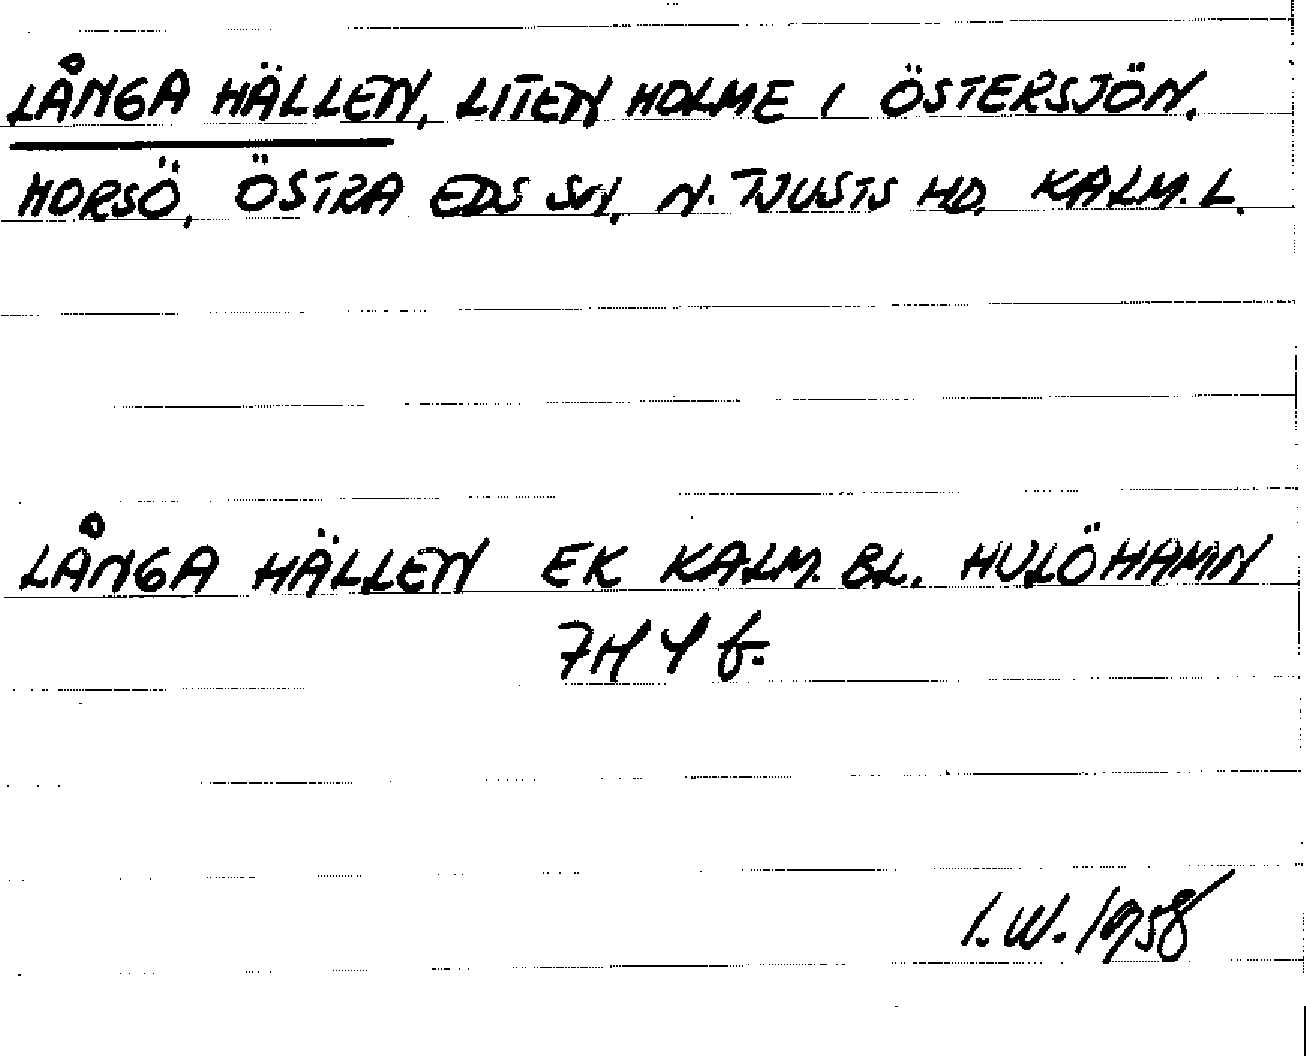 LÅNGA HÄLLEN, LITEN HOLME I ÖSTERSJÖN.
HORSÖ, ÖSTRA EDS SN, N. TJUSTS HD, KALM. L.
LÅNGA HÄLLEN EK KALM. BL. HULÖHAMN
7H 4 f.
I. W. 1958